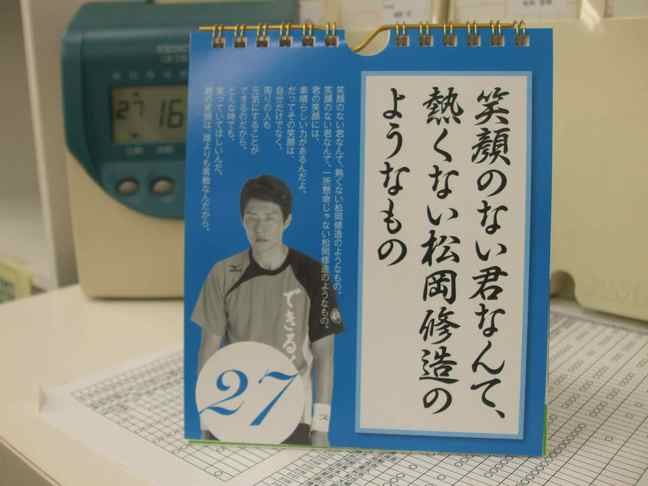 笑顔のない君なんて、
熱くない松岡修造の
ようなもの
笑顔のない君なんて、熱くない松岡修造のようなもの。
笑顔のない君なんて、一所懸命じゃない松岡修造のようなもの。
君の笑顔には、
素晴らしい力があるんだよ。
だってその笑顔は、
自分だけでなく、
周りの人も
元気にすることが
できるのだから。
どんな時でも、
笑っていてほしいんだ。
君の笑顔は、誰よりも素敵なんだから。
できる!
27
27 16